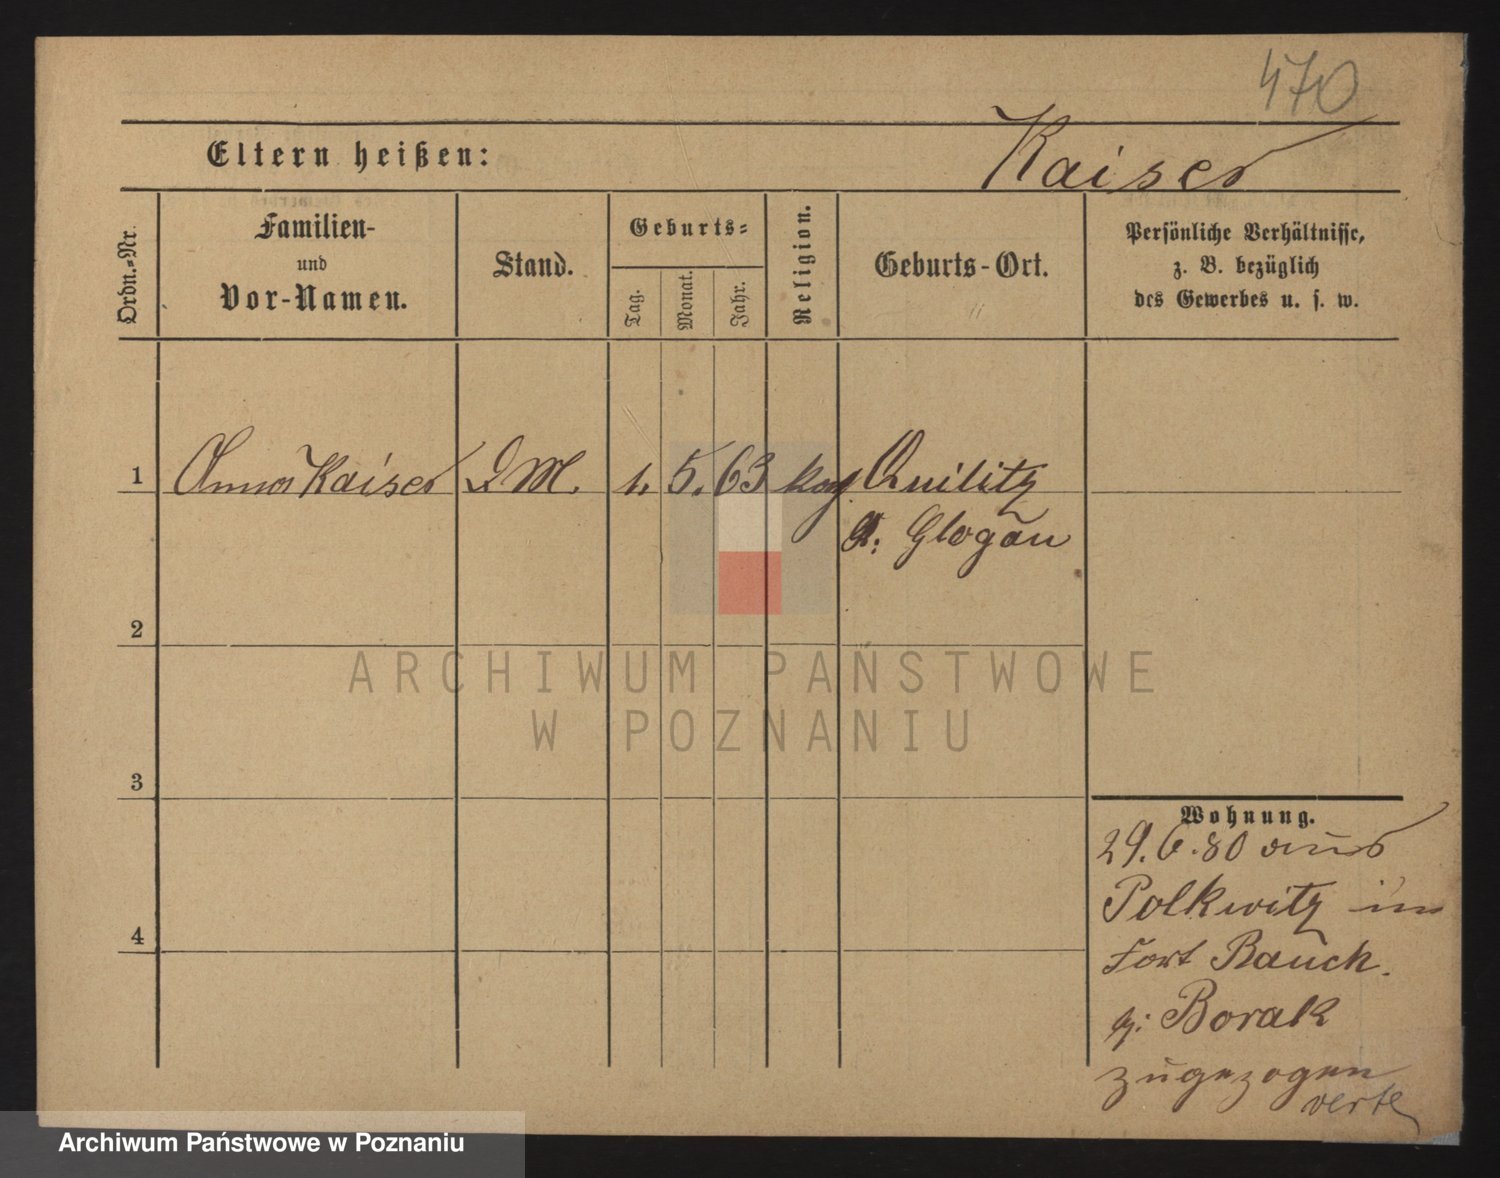 470
Eltern heißen: Kaiser
Ordn.=Nr.
Familien-
und
Vor-Namen.
Stand.
Geburts=
Tag.
Monat.
Jahr.
Religion.
Geburts-Ort.
Persönliche Verhältnisse,
z. B. bezüglich
des Gewerbes u. s. w.
1 Anna Kaiser D M. 1. 5. 63 Quilitz
Glogau
2
ARCHIWUM PAŃSTWOWE
W POZNANIU
3
Wohnung.
29.6.80 aus
Polkwitz im
Fort Rauch.
4
b: Borak
zugezogen
verte
Archiwum Państwowe w Poznaniu